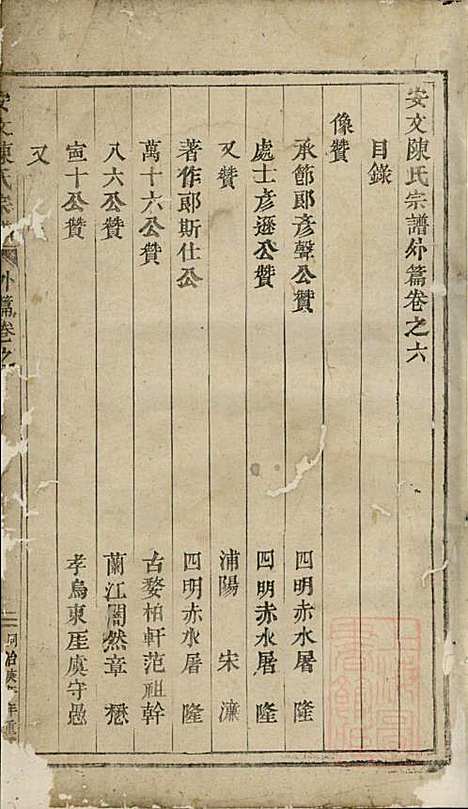 安文陳氏宗譜外篇卷之六
目錄
像贊
承節郎彥聲公贊 四明赤水屠隆
處士彥遜公贊 四明赤水屠隆
又贊 浦陽宋濂
著作郎斯仕公 四明赤水屠隆
萬十六公贊 古婺柏軒范祖幹
八六公贊 蘭江闇然章懋
宣十公贊 孝烏東厓虞守愚
又
安文陳氏宗譜 外篇卷之